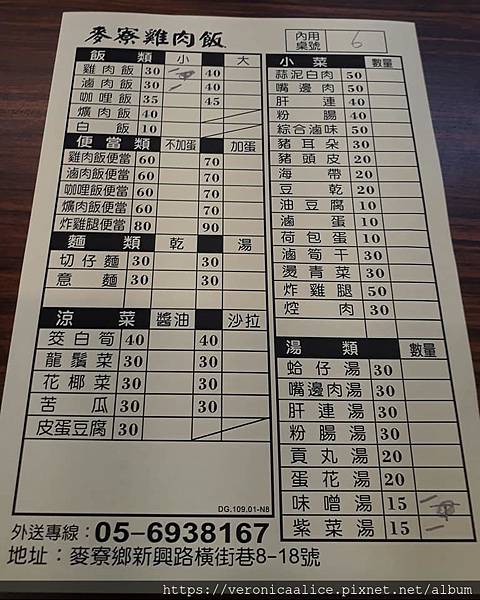 麥寮雞肉飯
內用桌號 6
飯類 小 大
雞肉飯 30 一 40
滷肉飯 30 40
咖哩飯 35 45
爌肉飯 40
白飯 10
便當類 不加蛋 加蛋
雞肉飯便當 60 70
滷肉飯便當 60 70
咖哩飯便當 60 70
爌肉飯便當 60 70
炸雞腿便當 80 90
麵類 乾 湯
切仔麵 30 30
意麵 30 30
涼菜 醬油 沙拉
筊白筍 40 40
龍鬚菜 30 30
花椰菜 30 30
苦瓜 30 30
皮蛋豆腐 30
DG.109.01-N8
小菜 數量
蒜泥白肉 50
嘴邊肉 50
肝連 40
粉腸 40
綜合滷味 50
豬耳朵 30
豬頭皮 20
海帶 20
豆乾 20
油豆腐 10
滷蛋 10
荷包蛋 10
滷筍干 30
燙青菜 30
炸雞腿 50
焢肉 30
湯類 數量
蛤仔湯 30
嘴邊肉湯 30
肝連湯 30
粉腸湯 30
貢丸湯 20
蛋花湯 20
味噌湯 15 一
紫菜湯 15 一
外送專線：05-6938167
地址：麥寮鄉新興路橫街巷8-18號
https://veronicaalice.pixnet.net/album